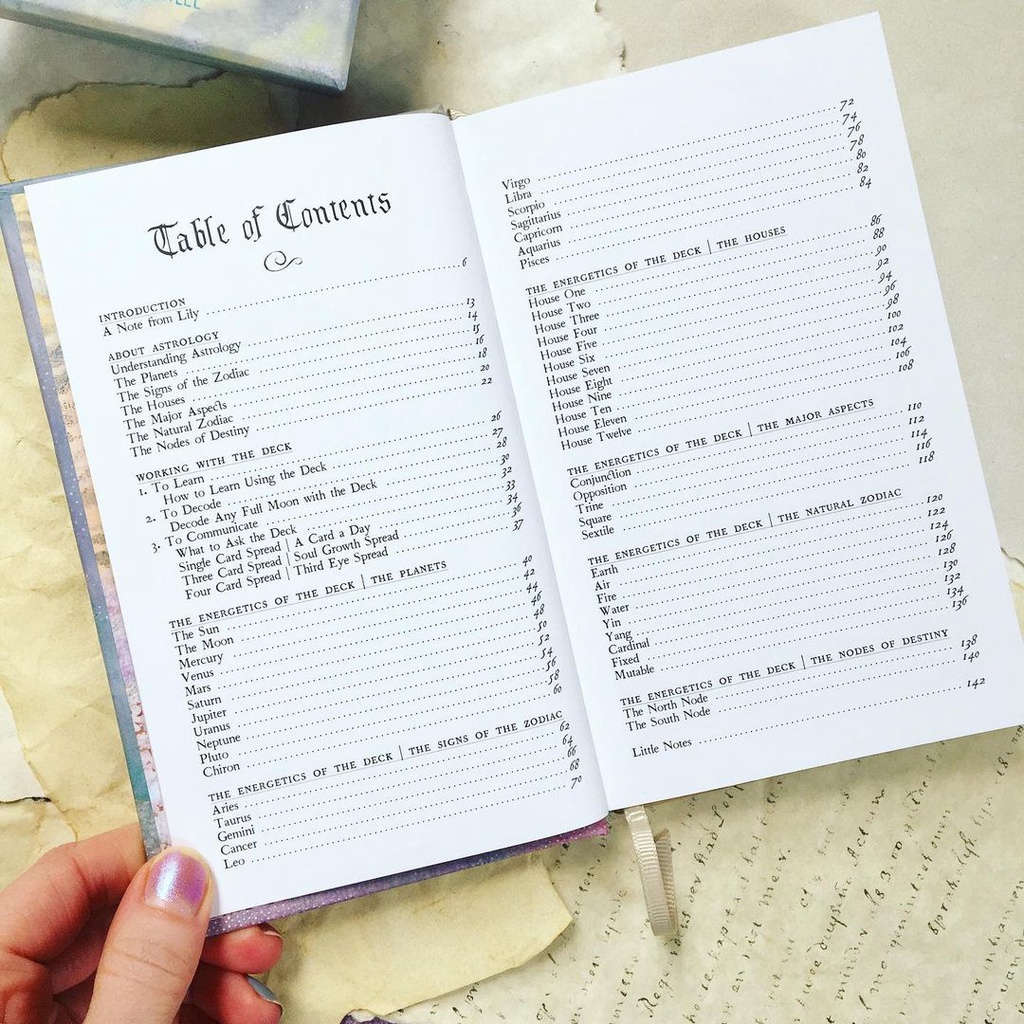 Table of Contents
INTRODUCTION
A Note from Lily 6
ABOUT ASTROLOGY
Understanding Astrology 13
The Planets 14
The Signs of the Zodiac 15
The Houses 16
The Major Aspects 18
The Natural Zodiac 20
The Nodes of Destiny 22
WORKING WITH THE DECK
1. To Learn 26
How to Learn Using the Deck 27
2. To Decode 28
Decode Any Full Moon with the Deck 30
3. To Communicate 32
What to Ask the Deck 33
Single Card Spread | A Card a Day 34
Three Card Spread | Soul Growth Spread 36
Four Card Spread | Third Eye Spread 37
THE ENERGETICS OF THE DECK | THE PLANETS
The Sun 40
The Moon 42
Mercury 44
Venus 46
Mars 48
Saturn 50
Jupiter 52
Uranus 54
Neptune 56
Pluto 58
Chiron 60
THE ENERGETICS OF THE DECK | THE SIGNS OF THE ZODIAC
Aries 62
Taurus 64
Gemini 66
Cancer 68
Leo 70
Virgo 72
Libra 74
Scorpio 76
Sagittarius 78
Capricorn 80
Aquarius 82
Pisces 84
THE ENERGETICS OF THE DECK | THE HOUSES
House One 86
House Two 88
House Three 90
House Four 92
House Five 94
House Six 96
House Seven 98
House Eight 100
House Nine 102
House Ten 104
House Eleven 106
House Twelve 108
THE ENERGETICS OF THE DECK | THE MAJOR ASPECTS
Conjunction 110
Opposition 112
Trine 114
Square 116
Sextile 118
THE ENERGETICS OF THE DECK | THE NATURAL ZODIAC
Earth 120
Air 122
Fire 124
Water 126
Yin 128
Yang 130
Cardinal 132
Fixed 134
Mutable 136
THE ENERGETICS OF THE DECK | THE NODES OF DESTINY
The North Node 138
The South Node 140
Little Notes 142